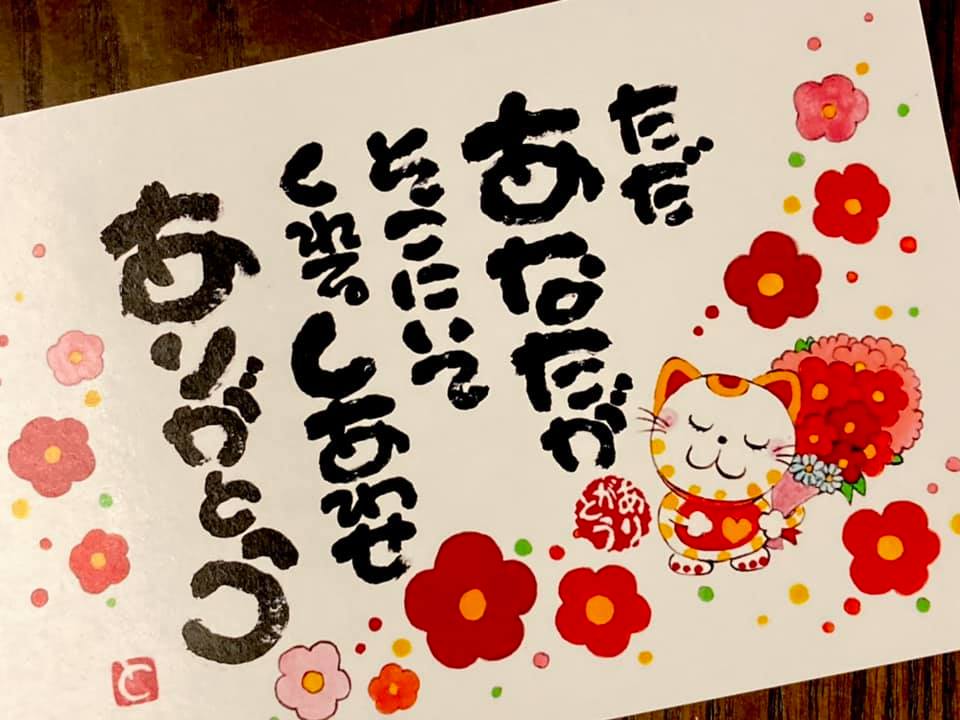 ただ
あなたが
そこにいて
くれる
しあわせ
ありがとう
ありがとう
と